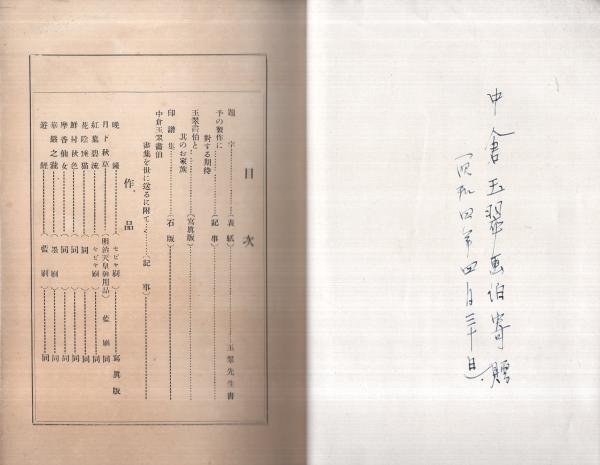 中倉玉翠画伯寄贈
目次
題字………（表紙）………玉翠先生書
予の製作に
對する期待………（記事）
玉翠画伯と
其のお家族………（寫眞版）
印譜集………（石版）
中倉玉翠畵伯
畵集を世に送るに附て………（記事）
作品
晩鐘………セピヤ刷………寫眞版
月下秋草………（明治天皇御用品）藍刷 同
紅葉碧流………セピヤ刷………同
花陰睡猫………同………同
鮮村秋色………同………同
摩香仙女………同………同
華嚴之瀧………墨刷………同
遊鯉………藍刷………同